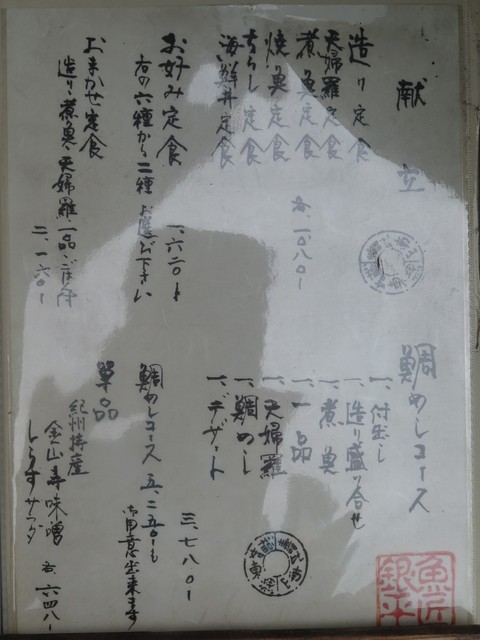 献立
造り定食
天婦羅定食
煮魚定食
焼魚定食
ちらし定食
海鮮丼定食
各、一、〇八〇ー
お好み定食
右の六種から二種お選び下さい
一、六二〇ー
おまかせ定食
造り煮魚天婦羅、一品、ごはん付
二、一六〇ー
鯛めしコース
一、付出し
一、造り盛り合せ
一、煮魚
一、一品
一、天婦羅
一、鯛めし
一、デザート
三、七八〇ー
鯛めしコース 五、二五〇ーも
御用意出来ます
単品
紀州特産
金山寺味噌
しらすサラダ
各 六四八ー
魚匠
銀平